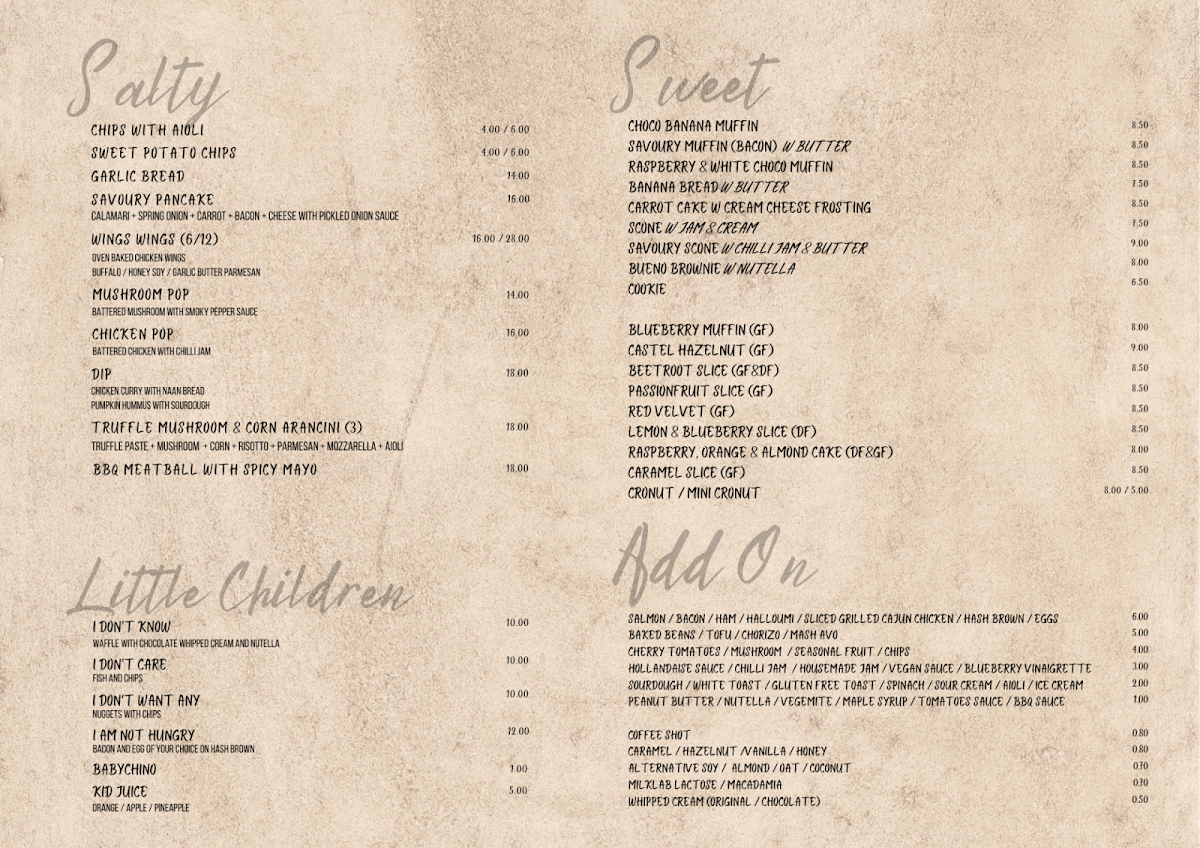 Salty
CHIPS WITH AIOLI 4.00 / 6.00
SWEET POTATO CHIPS 4.00 / 6.00
GARLIC BREAD 14.00
SAVOURY PANCAKE 16.00
CALAMARI + SPRING ONION + CARROT + BACON + CHEESE WITH PICKLED ONION SAUCE
WINGS WINGS (6/12) 16.00 / 28.00
OVEN BAKED CHICKEN WINGS
BUFFALO / HONEY SOY / GARLIC BUTTER PARMESAN
MUSHROOM POP 14.00
BATTERED MUSHROOM WITH SMOKY PEPPER SAUCE
CHICKEN POP 16.00
BATTERED CHICKEN WITH CHILLI JAM
DIP 18.00
CHICKEN CURRY WITH NAAN BREAD
PUMPKIN HUMMUS WITH SOURDOUGH
TRUFFLE MUSHROOM & CORN ARANCINI (3) 18.00
TRUFFLE PASTE + MUSHROOM + CORN + RISOTTO + PARMESAN + MOZZARELLA + AIOLI
BBQ MEATBALL WITH SPICY MAYO 18.00
Little Children
I DON'T KNOW 10.00
WAFFLE WITH CHOCOLATE WHIPPED CREAM AND NUTELLA
I DON'T CARE 10.00
FISH AND CHIPS
I DON'T WANT ANY 10.00
NUGGETS WITH CHIPS
I AM NOT HUNGRY 12.00
BACON AND EGG OF YOUR CHOICE ON HASH BROWN
BABYCHINO 1.00
KID JUICE 5.00
ORANGE / APPLE / PINEAPPLE
Sweet
CHOCO BANANA MUFFIN 8.50
SAVOURY MUFFIN (BACON) W BUTTER 8.50
RASPBERRY & WHITE CHOCO MUFFIN 8.50
BANANA BREAD W BUTTER 7.50
CARROT CAKE W CREAM CHEESE FROSTING 8.50
SCONE W JAM & CREAM 7.50
SAVOURY SCONE W CHILLI JAM & BUTTER 9.00
BUENO BROWNIE W NUTELLA 8.00
COOKIE 6.50
BLUEBERRY MUFFIN (GF) 8.00
CASTEL HAZELNUT (GF) 9.00
BEETROOT SLICE (GF&DF) 8.50
PASSIONFRUIT SLICE (GF) 8.50
RED VELVET (GF) 8.50
LEMON & BLUEBERRY SLICE (DF) 8.50
RASPBERRY, ORANGE & ALMOND CAKE (DF&GF) 8.00
CARAMEL SLICE (GF) 8.50
CRONUT / MINI CRONUT 8.00 / 5.00
Add On
SALMON / BACON / HAM / HALLOUMI / SLICED GRILLED CAJUN CHICKEN / HASH BROWN / EGGS 6.00
BAKED BEANS / TOFU / CHORIZO / MASH AVO 5.00
CHERRY TOMATOES / MUSHROOM / SEASONAL FRUIT / CHIPS 4.00
HOLLANDAISE SAUCE / CHILLI JAM / HOUSEMADE JAM / VEGAN SAUCE / BLUEBERRY VINAIGRETTE 3.00
SOURDOUGH / WHITE TOAST / GLUTEN FREE TOAST / SPINACH / SOUR CREAM / AIOLI / ICE CREAM 2.00
PEANUT BUTTER / NUTELLA / VEGEMITE / MAPLE SYRUP / TOMATOES SAUCE / BBQ SAUCE 1.00
COFFEE SHOT 0.80
CARAMEL / HAZELNUT /VANILLA / HONEY 0.80
ALTERNATIVE SOY / ALMOND / OAT / COCONUT 0.70
MILKLAB LACTOSE / MACADAMIA 0.70
WHIPPED CREAM (ORIGINAL / CHOCOLATE) 0.50